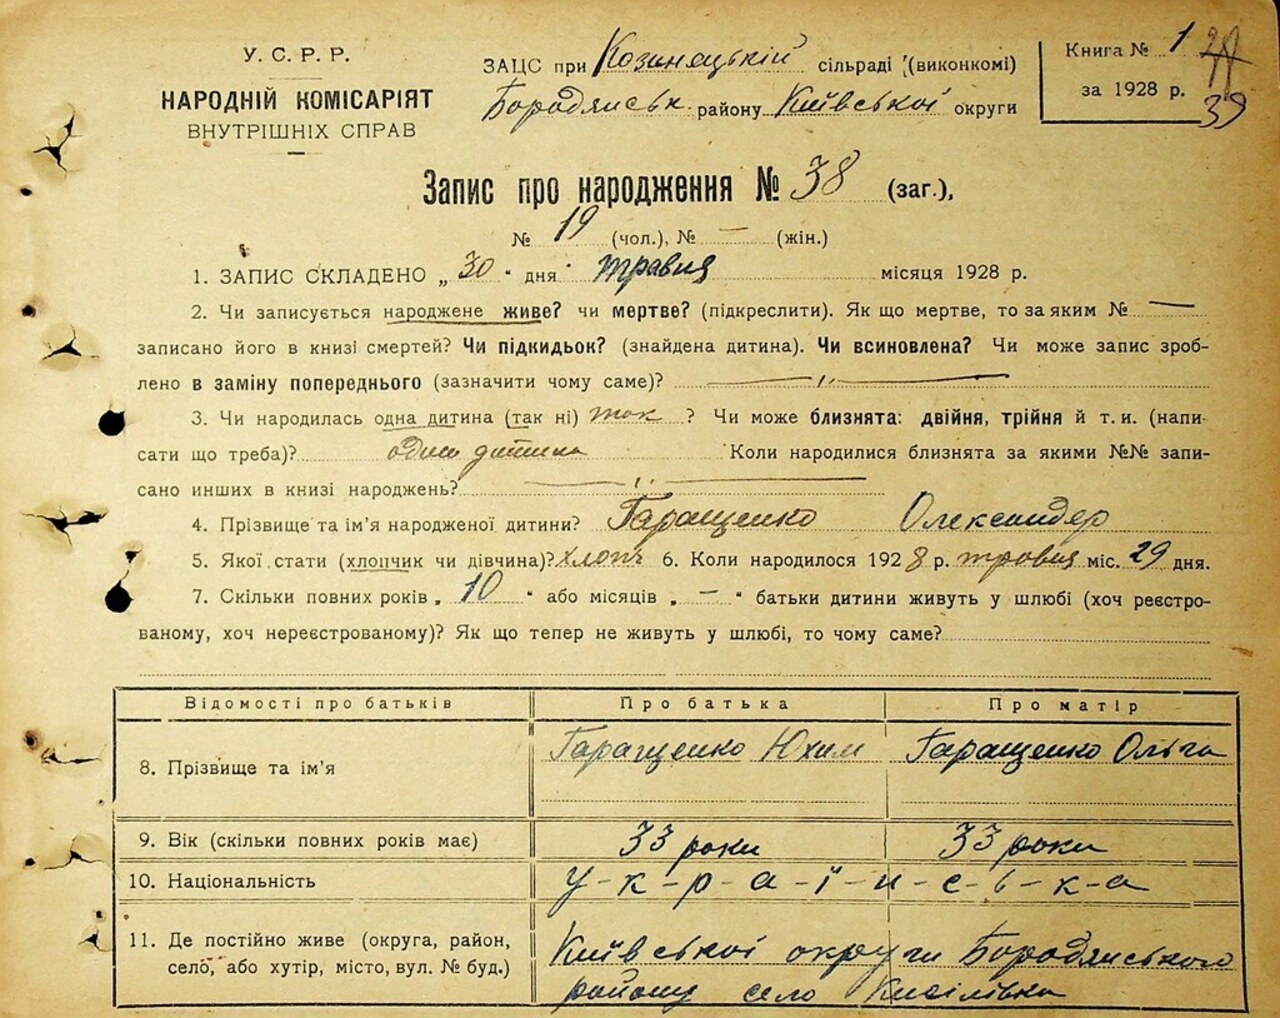 У. С. Р. Р.
НАРОДНІЙ КОМІСАРІЯТ
ВНУТРІШНІХ СПРАВ
ЗАЦС при Козинецькій сільраді (виконкомі)
Бородянськ. району Київської округи
Книга № 1
за 1928 р.
39
Запис про народження № 38 (заг.),
№ 19 (чол.), № — (жін.)
1. ЗАПИС СКЛАДЕНО „ 30 " дня травня місяця 1928 р.
2. Чи записується народжене живе? чи мертве? (підкреслити). Як що мертве, то за яким № —
записано його в книзі смертей? Чи підкидьок? (знайдена дитина). Чи всиновлена? Чи може запис зроб-
лено в заміну попереднього (зазначити чому саме)? — „ —
3. Чи народилась одна дитина (так ні) так ? Чи може близнята: двійня, трійня й т. и. (напи-
сати що треба)? одна дитина Коли народилися близнята за якими №№ запи-
сано инших в книзі народжень? — „ —
4. Прізвище та ім'я народженої дитини? Гаращенко Олександер
5. Якої стати (хлопчик чи дівчина)? хлопч 6. Коли народилося 1928 р. травня міс. 29 дня.
7. Скільки повних років „ 10 " або місяців „ — " батьки дитини живуть у шлюбі (хоч реєстро-
ваному, хоч нереєстрованому)? Як що тепер не живуть у шлюбі, то чому саме?
Відомості про батьків Про батька Про матір
8. Прізвище та ім'я Гаращенко Юхим Гаращенко Ольга
9. Вік (скільки повних років має) 33 роки 33 роки
10. Національність у-к-р-а-ї-н-с-ь-к-а
11. Де постійно живе (округа, район,
село, або хутір, місто, вул. № буд.)
Київської округи Бородянського
району село Кисілівка